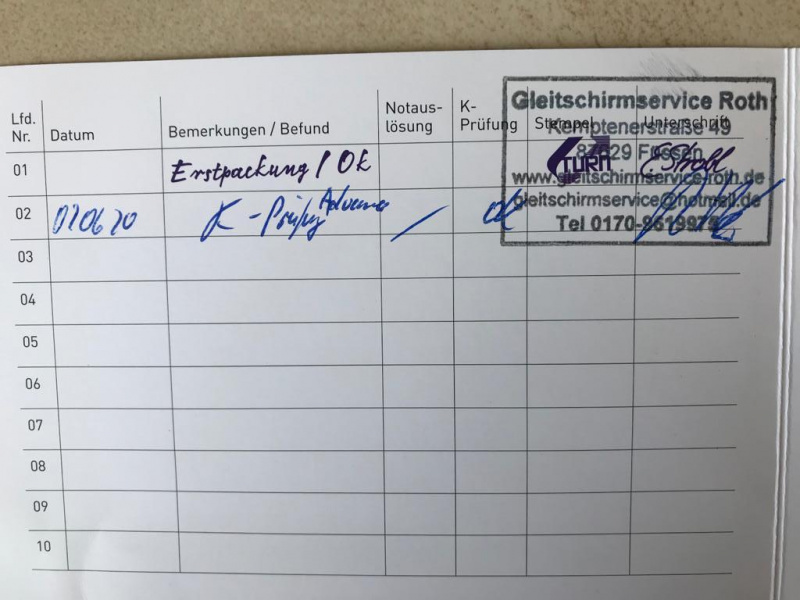 Lfd. Nr. Datum Bemerkungen / Befund Notaus-lösung K-Prüfung Stempel Unterschrift
Gleitschirmservice Roth
Kemptenerstraße 49
87629 Füssen
www.gleitschirmservice-roth.de
gleitschirmservice@hotmail.de
Tel 0170-
01 Erstpackung / Ok TURN E. Strobl
02 020620 K-Prüfung Advance / ok
03
04
05
06
07
08
09
10